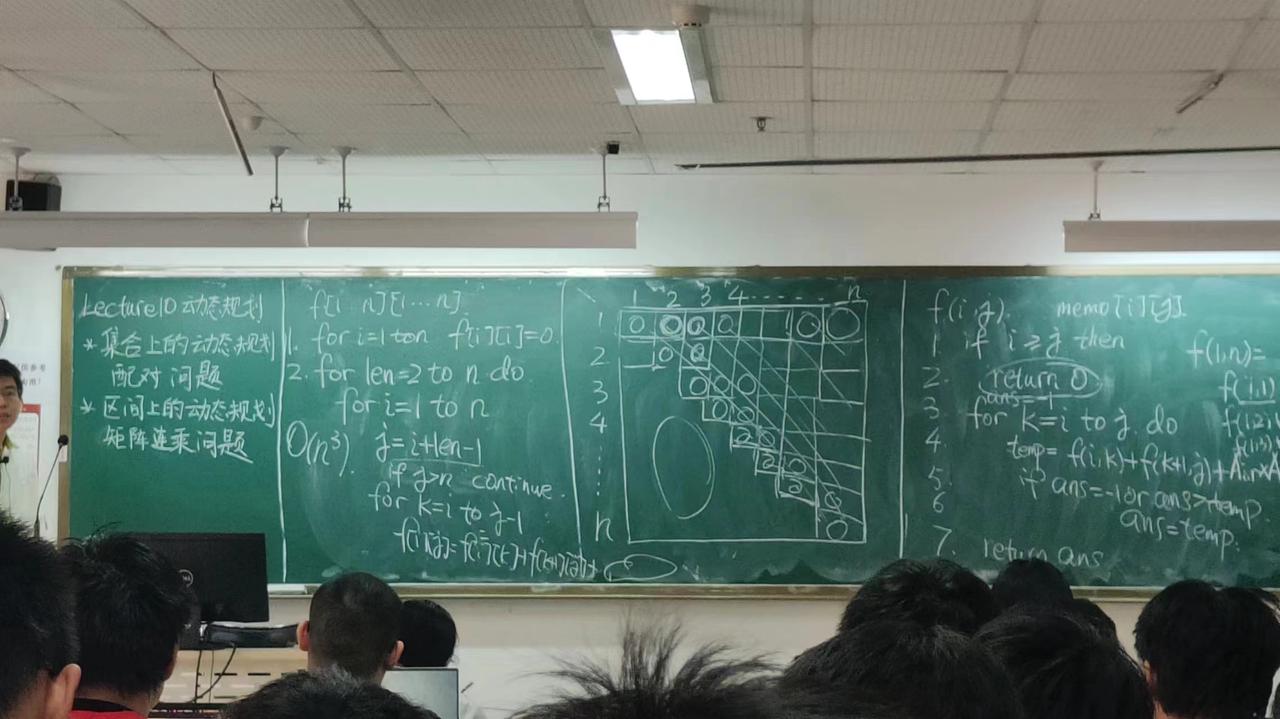 Lecture10 动态规划
* 集合上的动态规划
配对问题
* 区间上的动态规划
矩阵连乘问题
f[1…n][1…n]
1. for i=1 to n f[i][i]=0.
2. for len=2 to n do
for i=1 to n
O(n³).
j=i+len-1
if j>n continue.
for k=i to j-1
f[i][j]=f[i][k]+f[k+1][j]+
1 2 3 4 …… n
1
2
3
4
n
f(i,j). memo[i][j].
1 if i≥j then
2. return 0
ans=-1
3. for k=i to j do
4. temp= f(i,k)+f(k+1,j)+
5. if ans=-1 or ans>temp
6 ans=temp.
7. return ans
f(1,n)=
f(1,1)